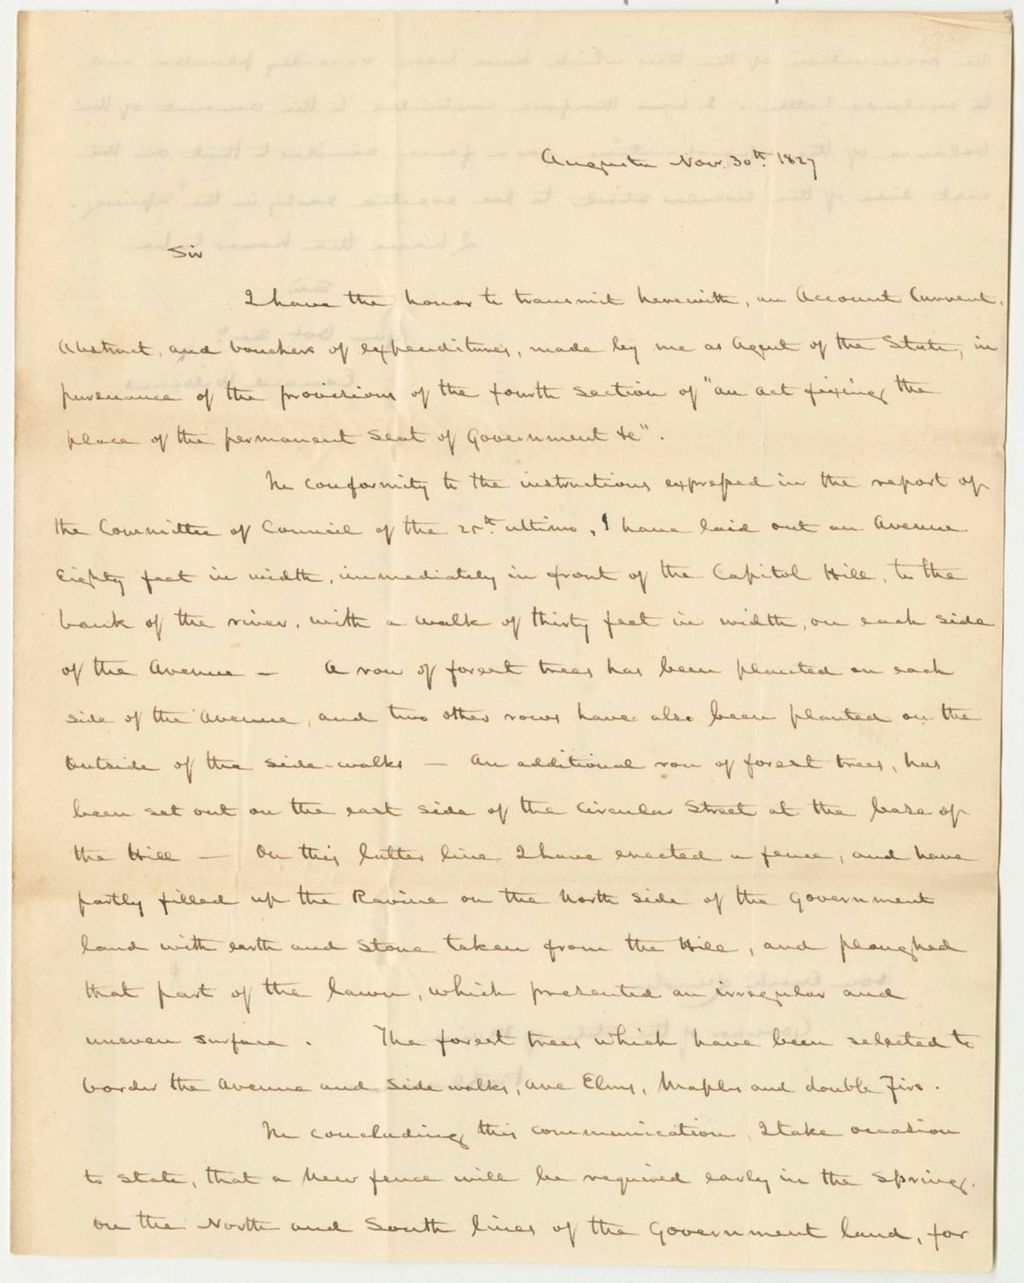 Augusta Nov. 30th. 1827
Sir
I have the honor to transmit herewith, an Account Current,
Abstract, and vouchers of expenditures, made by me as Agent of the State, in
pursuance of the provisions of the fourth section of "an act fixing the
place of the permanent Seat of Government &c".
In conformity to the instructions expressed in the report of
the Committee of Council of the 25th. ultimo, I have laid out an Avenue
Eighty feet in width, immediately in front of the Capitol Hill, to the
bank of the river, with a walk of thirty feet in width, on each side
of the Avenue — A row of forest trees has been planted on each
side of the Avenue, and two other rows have also been planted on the
outside of the side-walks — An additional row of forest trees, has
been set out on the east side of the Circular Street at the base of
the Hill — On this latter line I have erected a fence, and have
partly filled up the Ravine on the North side of the Government
land with earth and stone taken from the Hill, and ploughed
that part of the lawn, which presented an irregular and
uneven surface. The forest trees which have been selected to
border the Avenue and side walks, are Elms, Maples and double Firs.
In concluding this communication, I take occasion
to state, that a new fence will be required early in the Spring,
on the North and South lines of the Government land, for